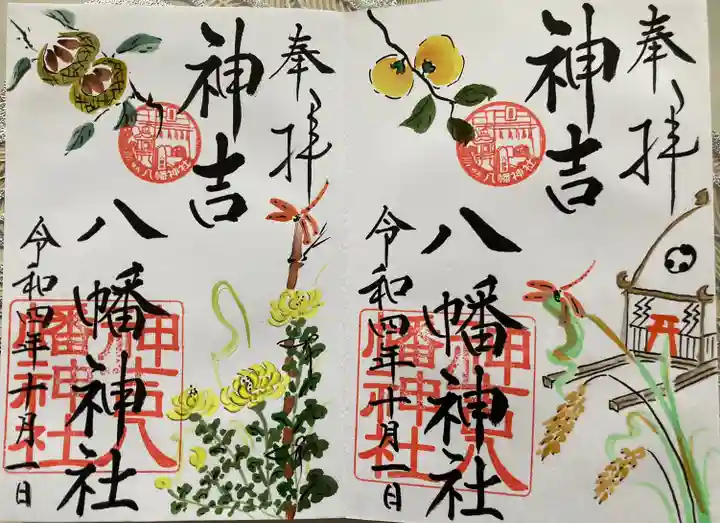 奉拝
神吉
八幡神社
令和四年十月一日
八幡神社
神吉八幡神社
奉拝
神吉
八幡神社
令和四年十月一日
八幡神社
神吉八幡神社